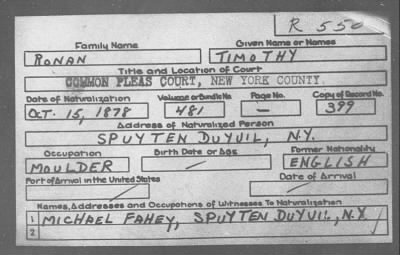 R 550
Family Name Given Name or Names
RONAN TIMOTHY
Title and Location of Court
COMMON PLEAS COURT, NEW YORK COUNTY.
Date of Naturalization Volume or Bundle No. Page No. Copy of Record No.
OCT. 15, 1878 481 — 399
Address of Naturalized Person
SPUYTEN DUYUIL, N.Y.
Occupation Birth Date or Age Former Nationality
MOULDER ENGLISH
Port of Arrival in the United States Date of Arrival
Names, Addresses and Occupations of Witnesses To Naturalization
1 MICHAEL FAHEY, SPUYTEN DUYUIL, N.Y.
2